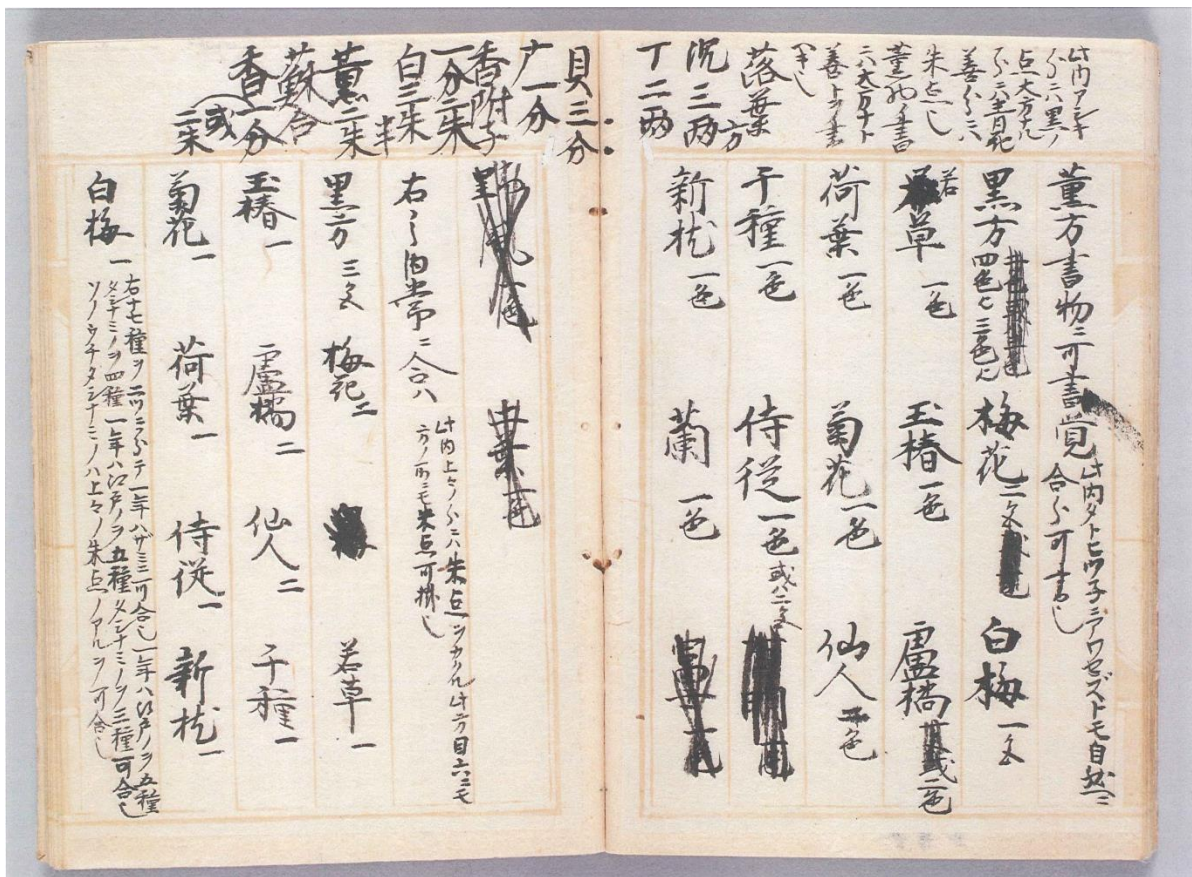 此内アシキ
分ハ黒ノ
点大方ナル
分ハ青点
善分ニハ
朱点シ
薫物ノ書
ニハ大方ナト
善トヲ書
ヘキし
落葉方
沉三両
丁二両
薫方書物ニ可書覚
此内タトヒツ子ニアワセズトモ自然ニ
合分可書し
黒方 四色ト三色ト 梅花 二色 白梅 一色
若草 一色 玉椿 一色 盧橘 或二色
荷葉 一色 菊花 一色 仙人 一色
千種 一色 侍従 一色 或ハ二色
新枕 一色 蘭 一色
貝三分
广一分
香附子
一分二朱
白三朱半
薫二朱
蘇合
香一分
或二朱
右之内常ニ合ハ
此内上々ノ分ニハ朱点ヲカクル此方目六ニモ
方ノ所ニモ朱点可掛し
黒方 三色 梅花 二 若草 一
玉椿 一 盧橘 二 仙人 二 千種 一
菊花 一 荷葉 一 侍従 一 新枕 一
白梅 一
右十七種ヲ二ツニ分テ一年ハ可合し一年ハ江戸ノヲ五種
タシナミノヲ四種一年ハ江戸ノヲ五種タシナミノヲ三種可合し
ソノウチタシナミノハ上々ノ朱点ノアルヲ可合し